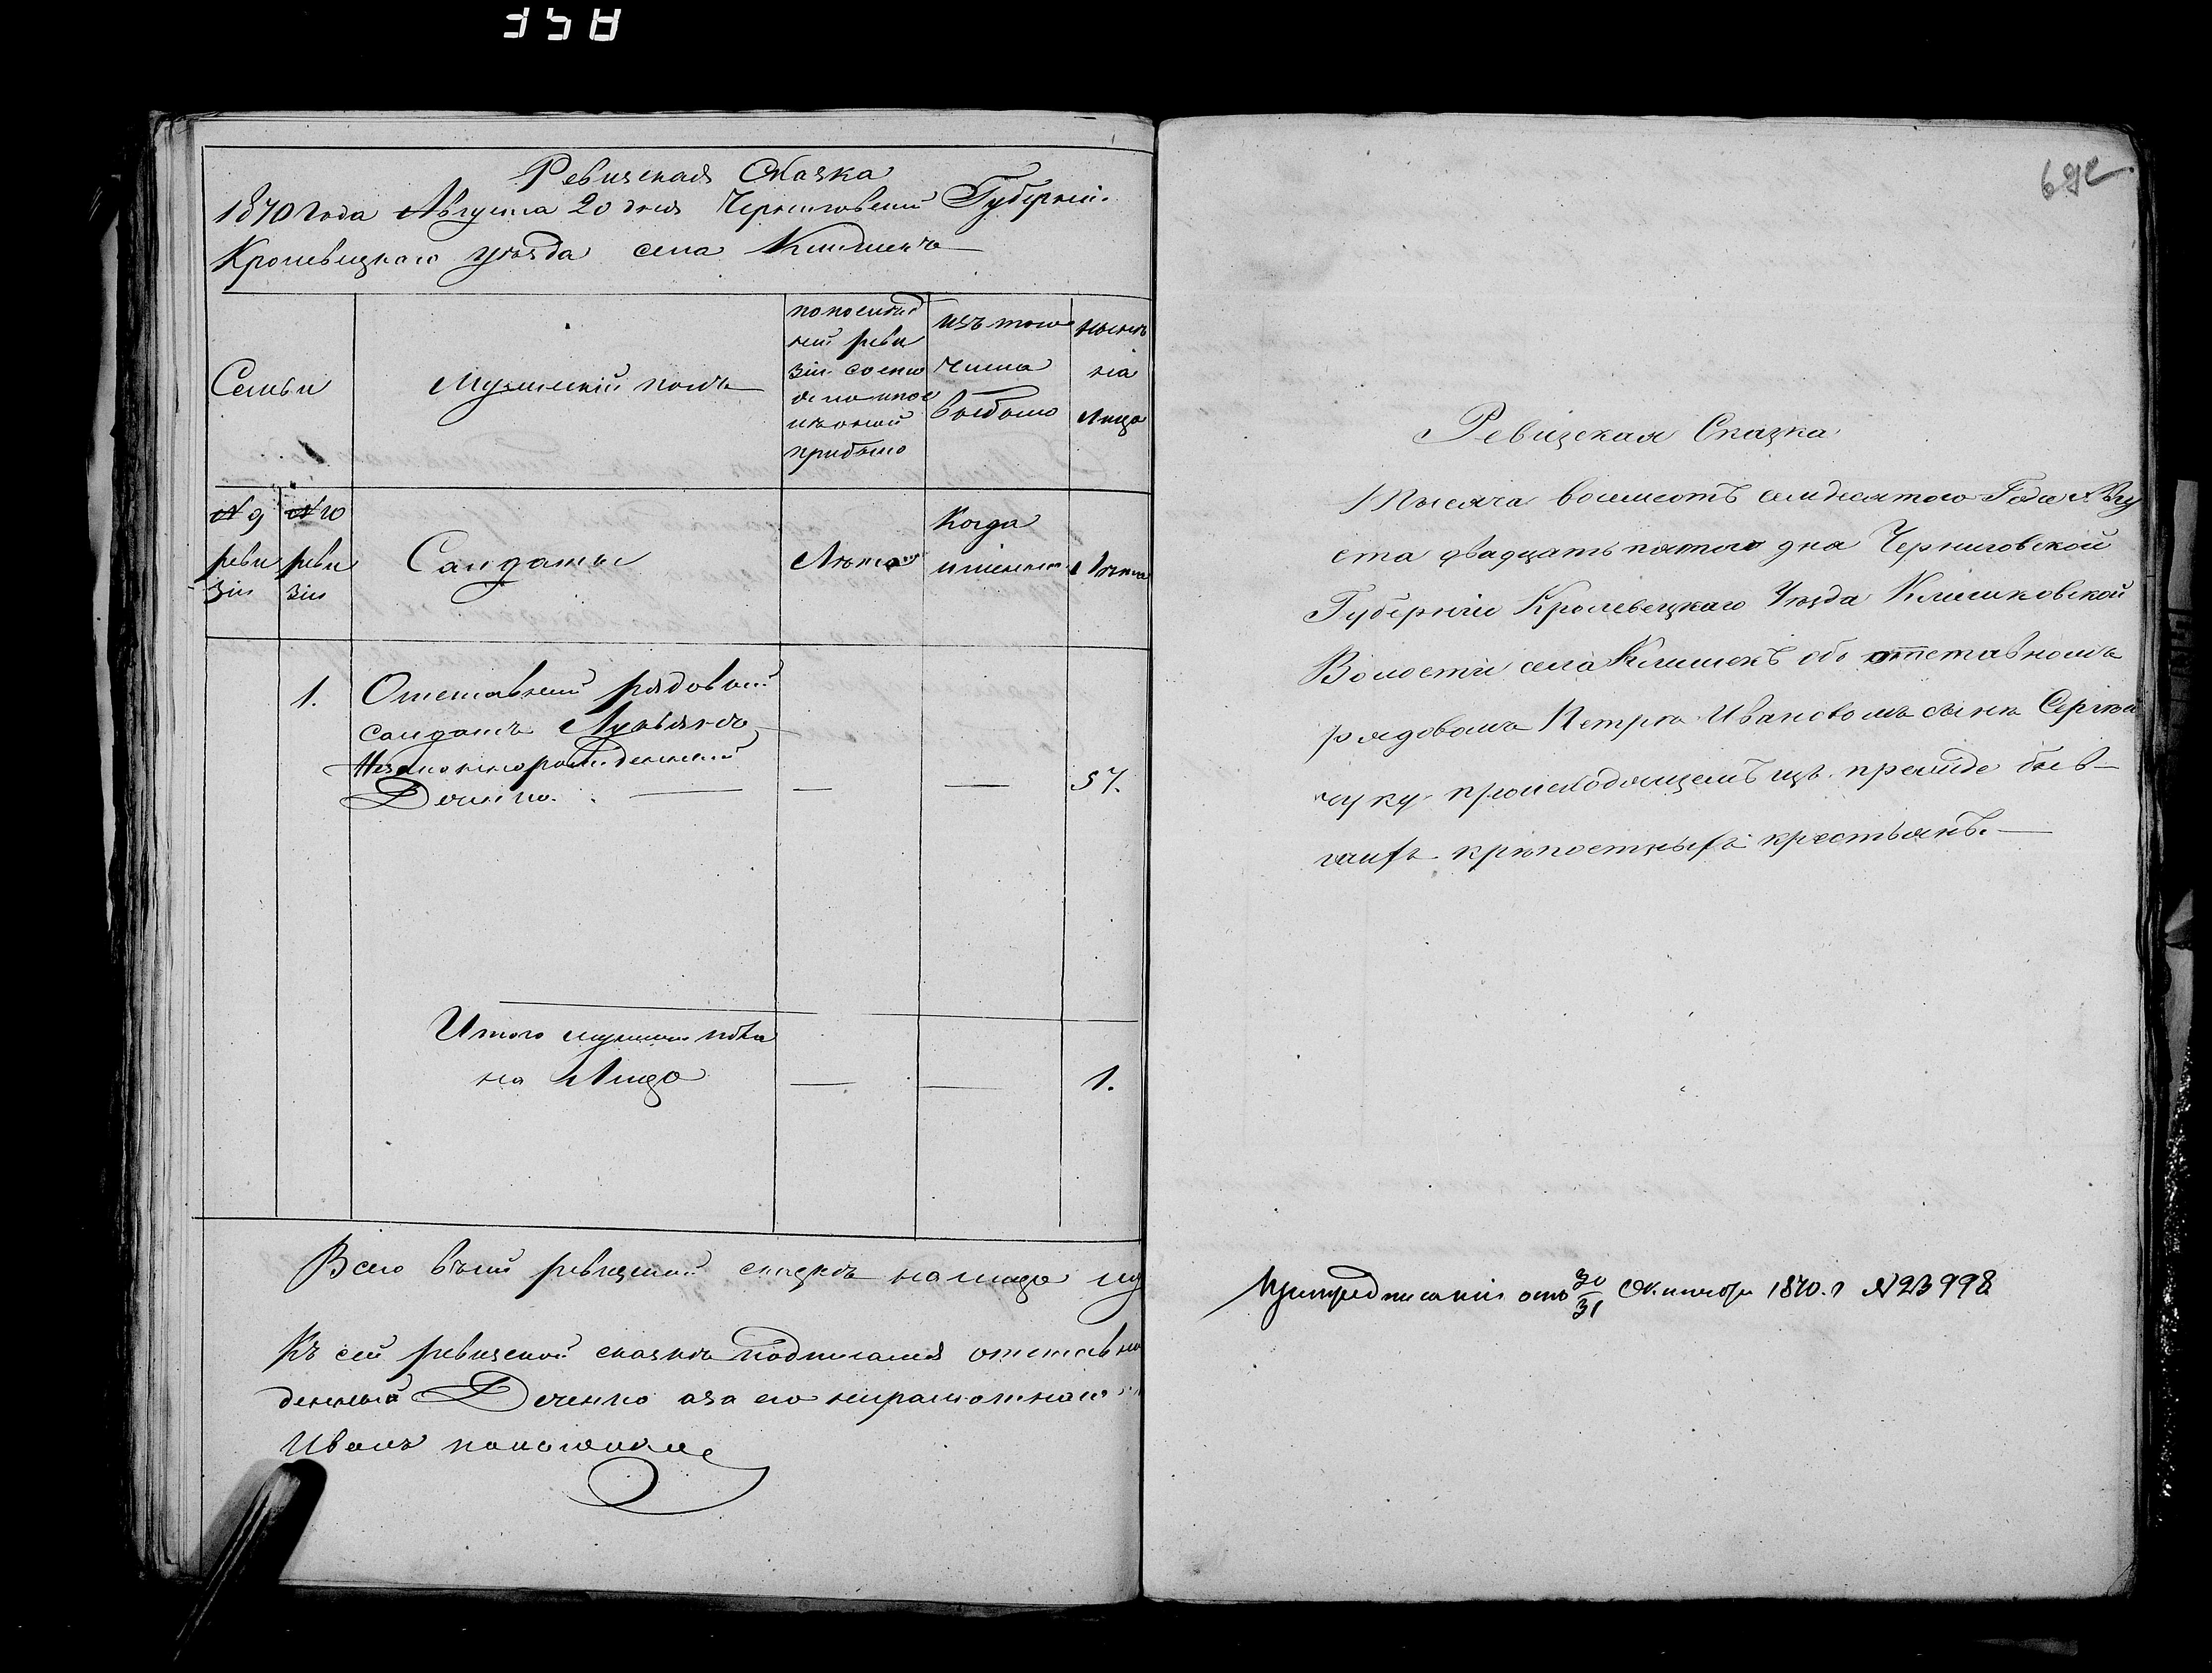 358
Ревизская Сказка
1870 года Августа 20 дня Черниговской Губерніи.
Кролевецкаго уѣзда села Клишекъ
Семьи
Мужескій полъ
по послѣд
ней реви
зіи состо
яло и пос
лѣ оной
прибыло
изъ того
числа
выбыло
нынѣ
на
лицо
№ 9
реви
зіи
№ 10
реви
зіи
Солдаты
Лѣта
Когда
именно
Лѣта
1.
Отставной рядовый
солдатъ Лукьянъ
Незаконнорожденный
Деченко.
57.
Итого мужеска пола
на Лицо
1.
Всего въ сей ревизской сказкѣ на лицо
Къ сей ревизской сказкѣ подписался отставно
денный Деченко а за его неграмотнаго
Иванъ
692
Ревизская Сказка
Тысяча восемсотъ семдесятого Года Авгу
ста двадцать пятого дня Черниговской
Губерніи Кролевецкаго Уѣзда Клишковской
Волости села Клишекъ объ отставномъ
рядовомъ Петрѣ Ивановомъ сынѣ Сергѣй
чуку происходящемъ изъ прежде быв-
шихъ крѣпостныхъ крестьянъ.
При предписаніи отъ 30/31 Октября 1870. г № 23998